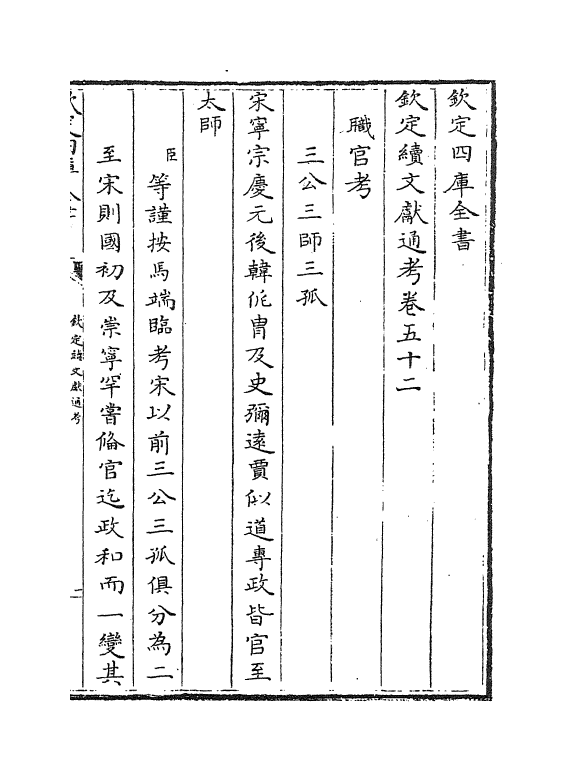 欽定四庫全書
欽定續文獻通考卷五十二
職官考
三公三師三孤
宋寧宗慶元後韓侂冑及史彌遠賈似道專政皆官至
太師
臣等謹按馬端臨考宋以前三公三孤俱分為二
至宋則國初及崇寧罕嘗備官迄政和而一變其
欽定續文獻通考